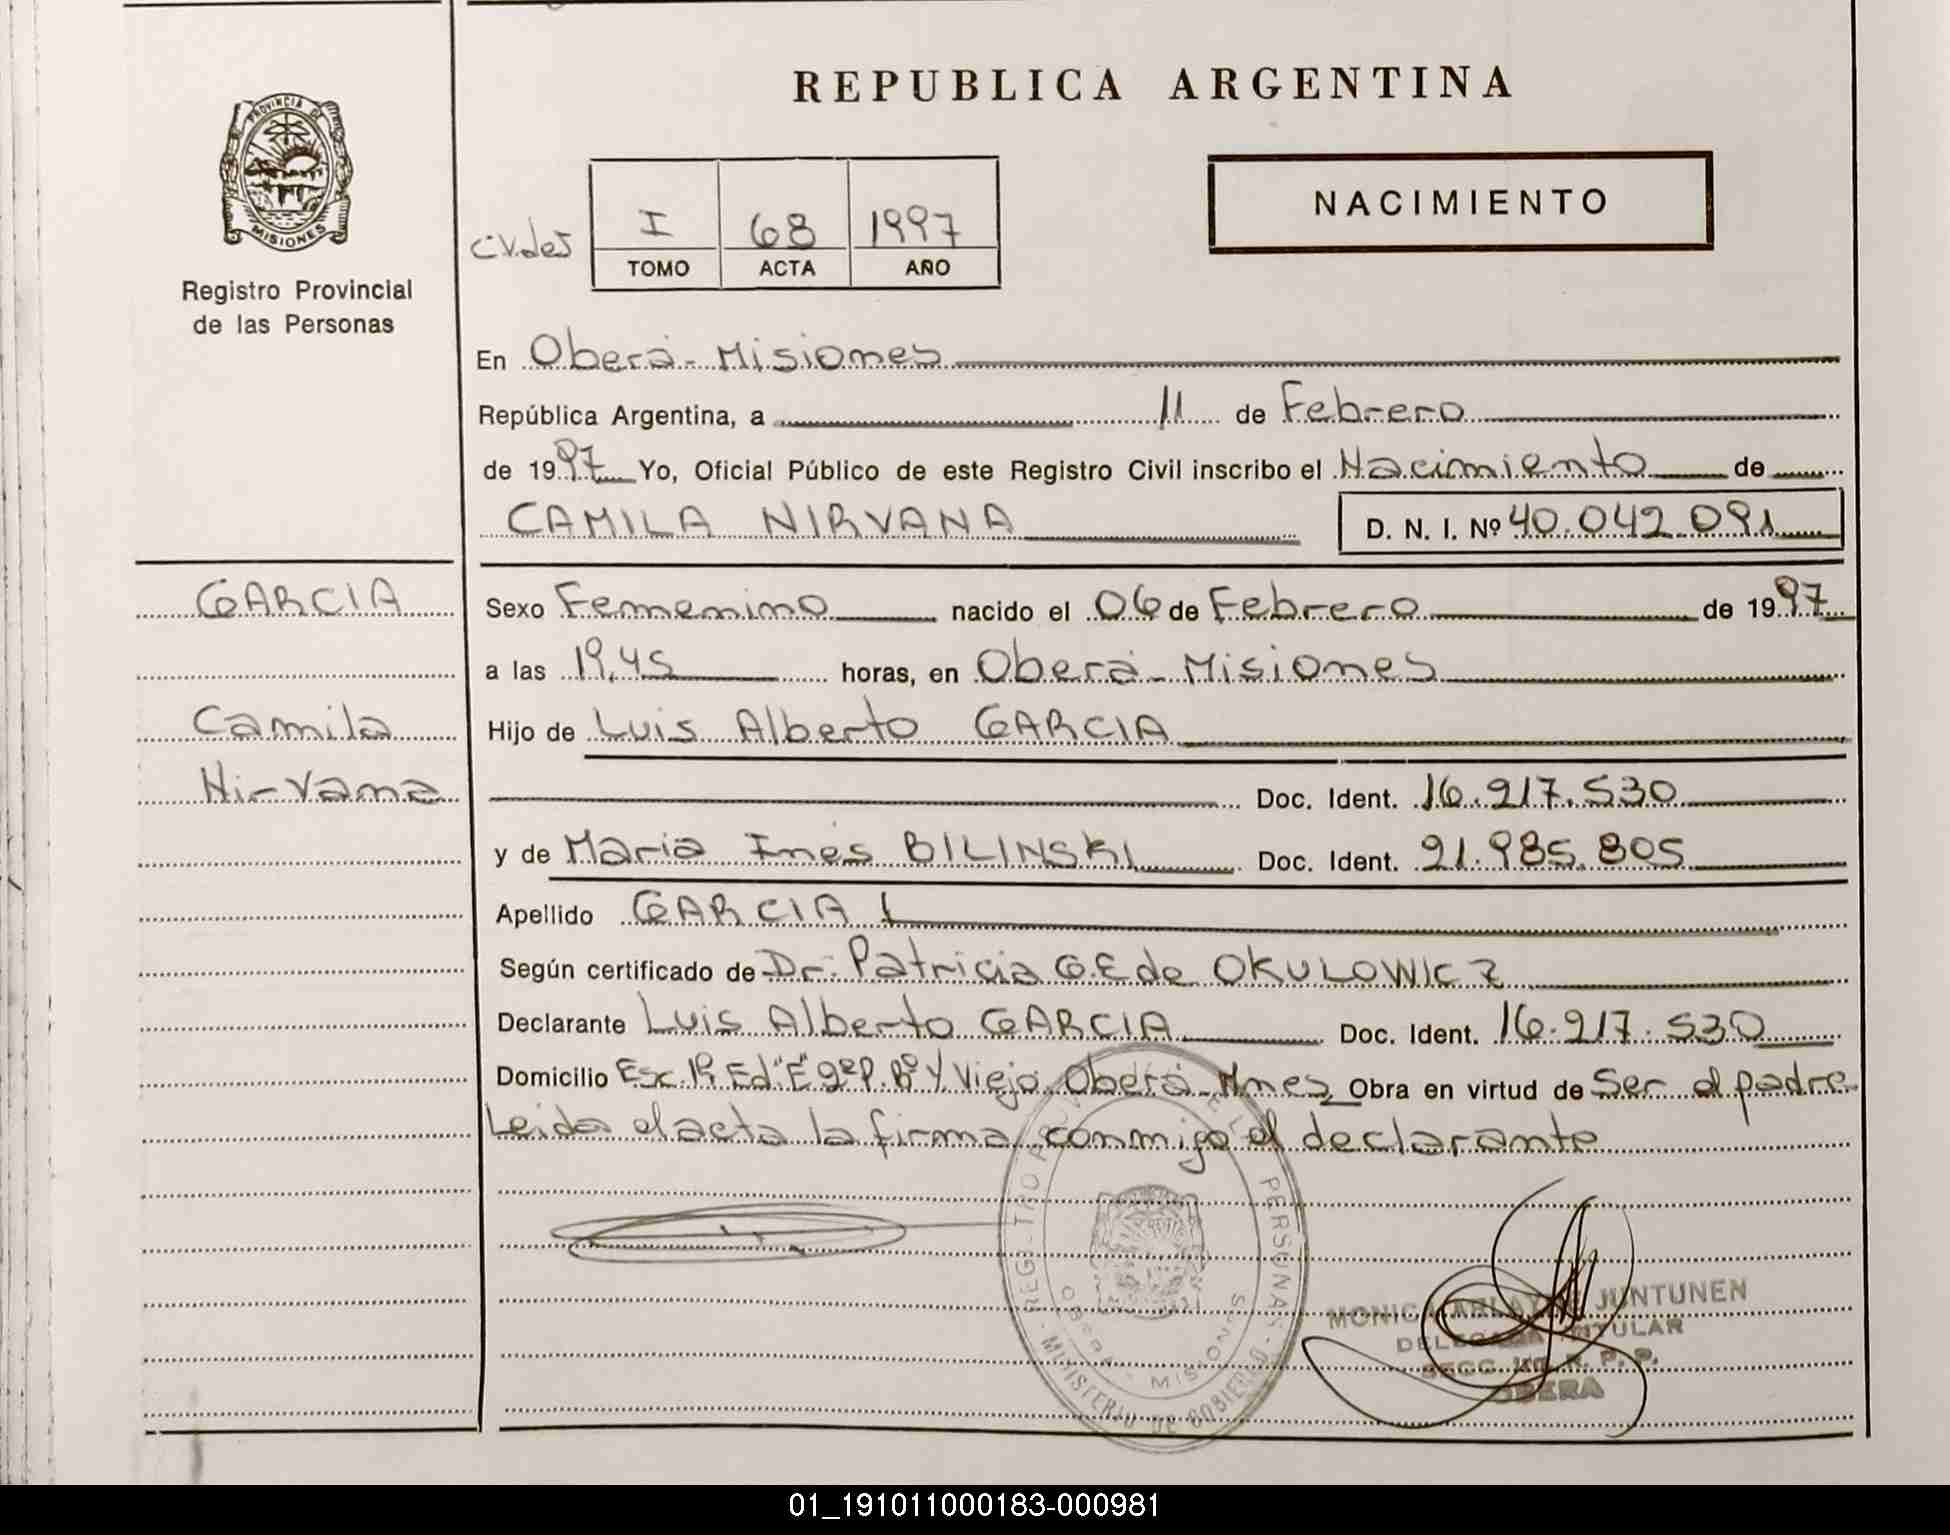 REPUBLICA ARGENTINA
PROVINCIA DE
MISIONES
Registro Provincial
de las Personas
NACIMIENTO
I 68 1997
TOMO ACTA AÑO
En Oberá - Misiones
República Argentina, a 11 de Febrero
de 1997 Yo, Oficial Público de este Registro Civil inscribo el Nacimiento de
CAMILA NIRVANA D. N. I. Nº 40.042.091
GARCIA
Camila
Nirvana
Sexo Femenino nacido el 06 de Febrero de 1997
a las 19,45 horas, en Oberá - Misiones
Hijo de Luis Alberto GARCIA
Doc. Ident. 16.917.530
y de Maria Inés BILINSKI Doc. Ident. 21.985.805
Apellido GARCIA
Según certificado de Dr. Patricia G.E de OKULOWICZ
Declarante Luis Alberto GARCIA Doc. Ident. 16.917.530
Domicilio Esc. 19, Ed "E" 9º P. Bº Y. Viejo, Oberá - Mnes, Obra en virtud de Ser el padre
Leida el acta la firma conmigo el declarante
PERSONAS
OBERA - MISIONES
MINISTERIO DE GOBIERNO
MONICA JUNTUNEN
DELEGADA TITULAR
SECC. R. P. P.
OBERA
01_191011000183-000981